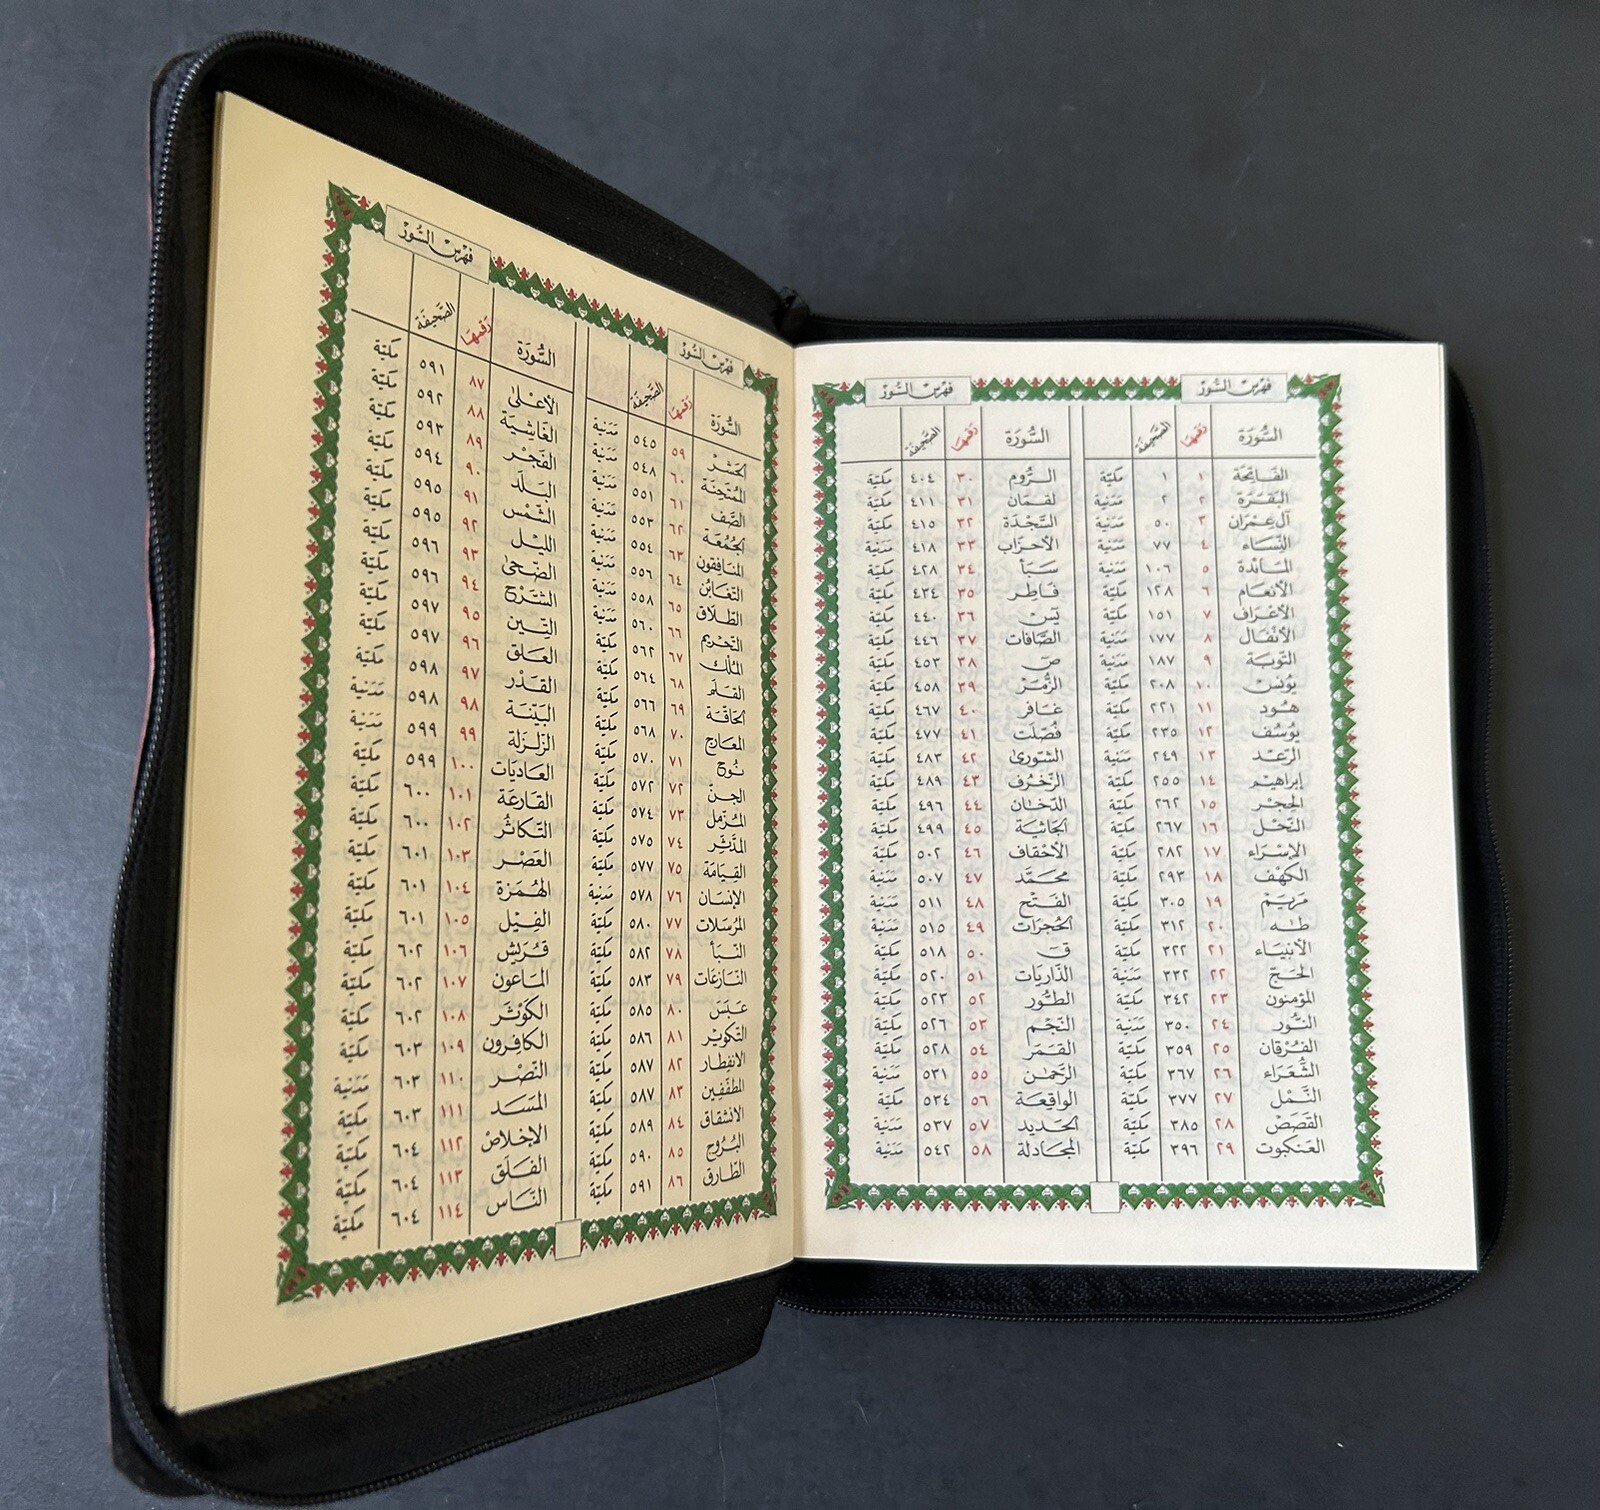 فهرس السُّوَر
السُّورَة رقمها الصَّحيفَة
الفَاتِحَة ١ ١ مكيّة
البَقَرَة ٢ ٢ مَدَنية
آل عِمْرَان ٣ ٥٠ مَدَنية
النِّسَاء ٤ ٧٧ مَدَنية
المَائدة ٥ ١٠٦ مَدَنية
الأنعَام ٦ ١٢٨ مكيّة
الأعرَاف ٧ ١٥١ مكيّة
الأنفَال ٨ ١٧٧ مَدَنية
التوبَة ٩ ١٨٧ مَدَنية
يُونس ١٠ ٢٠٨ مكيّة
هُود ١١ ٢٢١ مكيّة
يُوسُف ١٢ ٢٣٥ مكيّة
الرّعد ١٣ ٢٤٩ مَدَنية
إبراهيم ١٤ ٢٥٥ مكيّة
الحِجر ١٥ ٢٦٢ مكيّة
النّحل ١٦ ٢٦٧ مكيّة
الإسرَاء ١٧ ٢٨٢ مكيّة
الكهف ١٨ ٢٩٣ مكيّة
مَريَم ١٩ ٣٠٥ مكيّة
طه ٢٠ ٣١٢ مكيّة
الأنبيَاء ٢١ ٣٢٢ مكيّة
الحَجّ ٢٢ ٣٣٢ مَدَنية
المؤمنون ٢٣ ٣٤٢ مكيّة
النُّور ٢٤ ٣٥٠ مَدَنية
الفُرْقان ٢٥ ٣٥٩ مكيّة
الشُّعَرَاء ٢٦ ٣٦٧ مكيّة
النَّمْل ٢٧ ٣٧٧ مكيّة
القَصَص ٢٨ ٣٨٥ مكيّة
العَنكبوت ٢٩ ٣٩٦ مكيّة
فهرس السُّوَر
السُّورَة رقمها الصَّحيفَة
الرُّوم ٣٠ ٤٠٤ مكيّة
لقمَان ٣١ ٤١١ مكيّة
السَّجْدَة ٣٢ ٤١٥ مكيّة
الأحزَاب ٣٣ ٤١٨ مَدَنية
سَبَأ ٣٤ ٤٢٨ مكيّة
فَاطِر ٣٥ ٤٣٤ مكيّة
يسٓ ٣٦ ٤٤٠ مكيّة
الصَّافات ٣٧ ٤٤٦ مكيّة
صٓ ٣٨ ٤٥٣ مكيّة
الزُّمَر ٣٩ ٤٥٨ مكيّة
غَافر ٤٠ ٤٦٧ مكيّة
فُصّلَت ٤١ ٤٧٧ مكيّة
الشّورىٰ ٤٢ ٤٨٣ مكيّة
الزّخرُف ٤٣ ٤٨٩ مكيّة
الدّخَان ٤٤ ٤٩٦ مكيّة
الجَاثية ٤٥ ٤٩٩ مكيّة
الأحقَاف ٤٦ ٥٠٢ مكيّة
محَمَّد ٤٧ ٥٠٧ مَدَنية
الفَتْح ٤٨ ٥١١ مَدَنية
الحُجرَات ٤٩ ٥١٥ مَدَنية
قٓ ٥٠ ٥١٨ مكيّة
الذّاريَات ٥١ ٥٢٠ مكيّة
الطُّور ٥٢ ٥٢٣ مكيّة
النّجْم ٥٣ ٥٢٦ مكيّة
القَمَر ٥٤ ٥٢٨ مكيّة
الرّحمٰن ٥٥ ٥٣١ مَدَنية
الواقِعَة ٥٦ ٥٣٤ مكيّة
الحَديد ٥٧ ٥٣٧ مَدَنية
المجَادلة ٥٨ ٥٤٢ مَدَنية
فهرس السُّوَر
السُّورَة رقمها الصَّحيفَة
الحَشْر ٥٩ ٥٤٥ مَدَنية
المُمتَحِنَة ٦٠ ٥٤٨ مَدَنية
الصَّف ٦١ ٥٥١ مَدَنية
الجُمُعَة ٦٢ ٥٥٣ مَدَنية
المنَافقون ٦٣ ٥٥٤ مَدَنية
التّغَابُن ٦٤ ٥٥٦ مَدَنية
الطّلَاق ٦٥ ٥٥٨ مَدَنية
التّحريم ٦٦ ٥٦٠ مَدَنية
المُلك ٦٧ ٥٦٢ مكيّة
القَلَم ٦٨ ٥٦٤ مكيّة
الحَاقّة ٦٩ ٥٦٦ مكيّة
المعَارج ٧٠ ٥٦٨ مكيّة
نُوح ٧١ ٥٧٠ مكيّة
الجِنّ ٧٢ ٥٧٢ مكيّة
المُزّمل ٧٣ ٥٧٤ مكيّة
المدّثّر ٧٤ ٥٧٥ مكيّة
القِيَامَة ٧٥ ٥٧٧ مكيّة
الإنسَان ٧٦ ٥٧٨ مَدَنية
المُرسَلات ٧٧ ٥٨٠ مكيّة
النّبَأ ٧٨ ٥٨٢ مكيّة
النّازعَات ٧٩ ٥٨٣ مكيّة
عَبَسَ ٨٠ ٥٨٥ مكيّة
التّكوير ٨١ ٥٨٦ مكيّة
الانفِطار ٨٢ ٥٨٧ مكيّة
المطفّفِين ٨٣ ٥٨٧ مكيّة
الانشقاق ٨٤ ٥٨٩ مكيّة
البُرُوج ٨٥ ٥٩٠ مكيّة
الطّارق ٨٦ ٥٩١ مكيّة
فهرس السُّوَر
السُّورَة رقمها الصَّحيفَة
الأعْلىٰ ٨٧ ٥٩١ مكيّة
الغَاشِيَة ٨٨ ٥٩٢ مكيّة
الفَجْر ٨٩ ٥٩٣ مكيّة
البَلَد ٩٠ ٥٩٤ مكيّة
الشّمْس ٩١ ٥٩٥ مكيّة
الليْل ٩٢ ٥٩٥ مكيّة
الضّحىٰ ٩٣ ٥٩٦ مكيّة
الشّرْح ٩٤ ٥٩٦ مكيّة
التّين ٩٥ ٥٩٧ مكيّة
العَلق ٩٦ ٥٩٧ مكيّة
القَدْر ٩٧ ٥٩٨ مكيّة
البَيّنَة ٩٨ ٥٩٨ مَدَنية
الزّلزَلة ٩٩ ٥٩٩ مَدَنية
العَاديَات ١٠٠ ٥٩٩ مكيّة
القَارعَة ١٠١ ٦٠٠ مكيّة
التّكاثُر ١٠٢ ٦٠٠ مكيّة
العَصْر ١٠٣ ٦٠١ مكيّة
الهُمَزة ١٠٤ ٦٠١ مكيّة
الفِيْل ١٠٥ ٦٠١ مكيّة
قُرَيش ١٠٦ ٦٠٢ مكيّة
المَاعون ١٠٧ ٦٠٢ مكيّة
الكَوْثَر ١٠٨ ٦٠٢ مكيّة
الكافِرون ١٠٩ ٦٠٣ مكيّة
النّصْر ١١٠ ٦٠٣ مَدَنية
المَسَد ١١١ ٦٠٣ مكيّة
الإخلاص ١١٢ ٦٠٤ مكيّة
الفَلَق ١١٣ ٦٠٤ مكيّة
النَّاس ١١٤ ٦٠٤ مكيّة